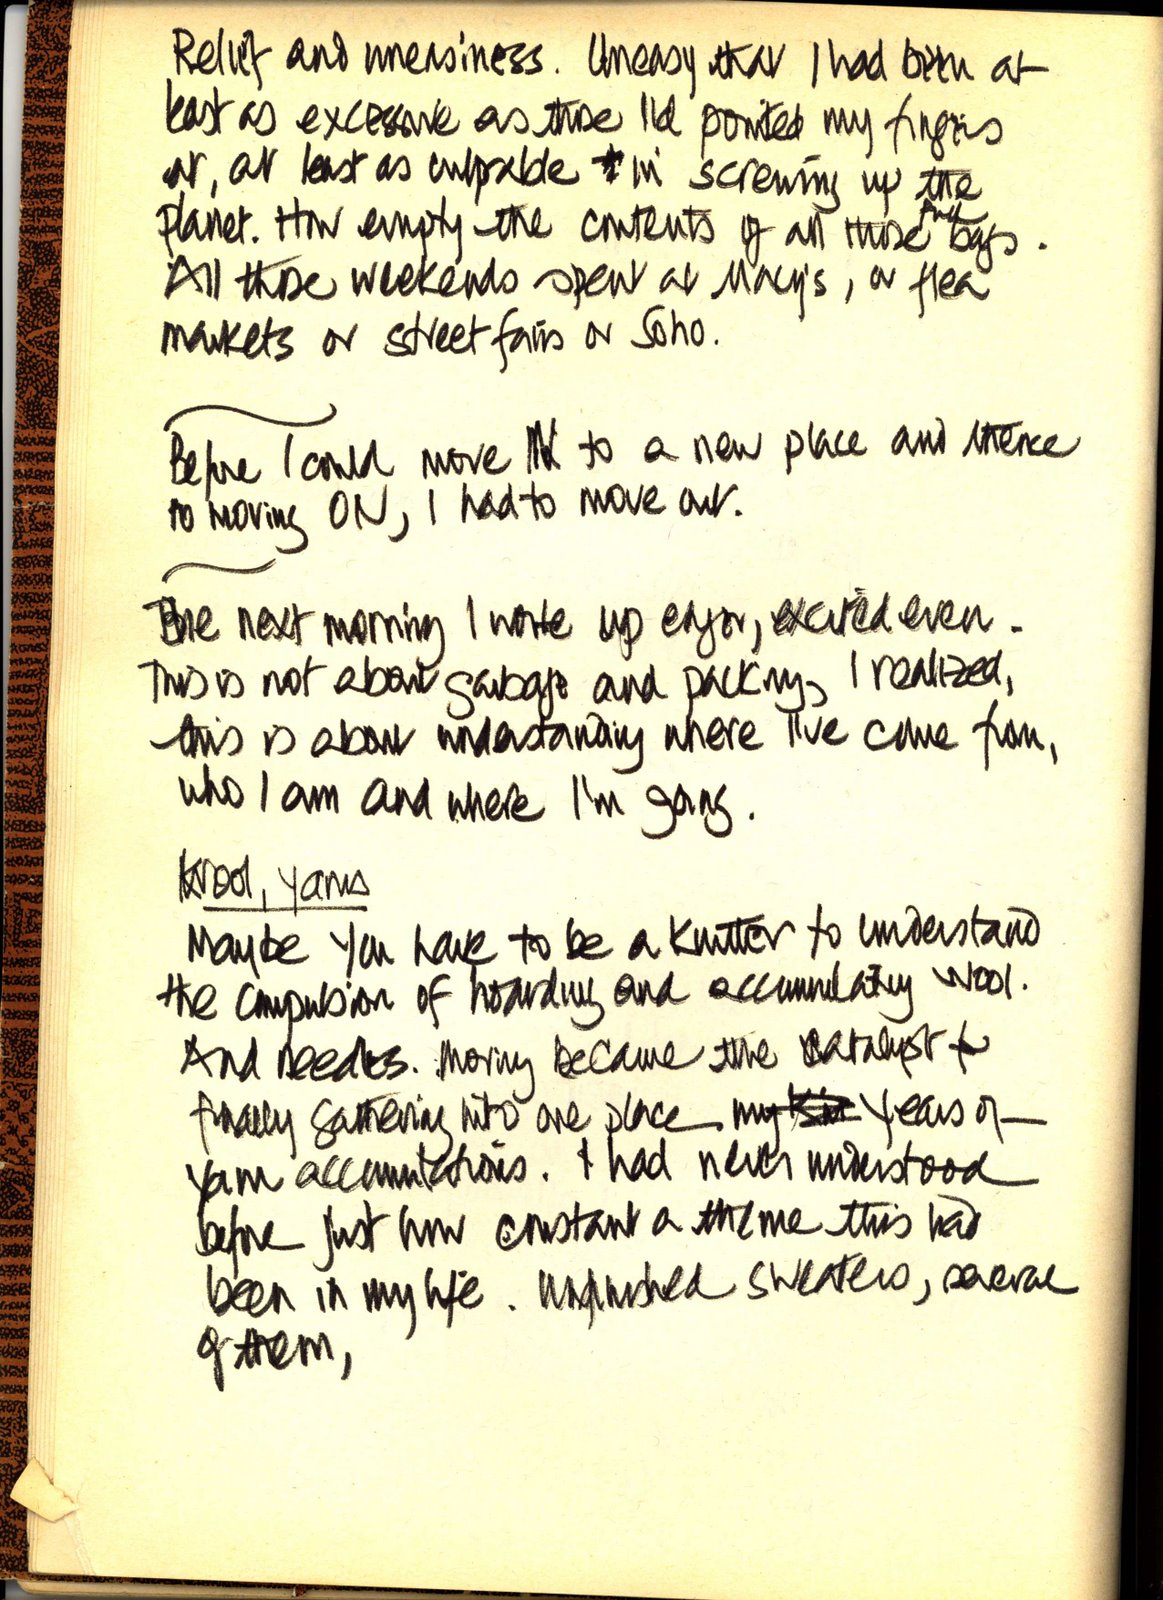 Relief and uneasiness. Uneasy that I had been at
least as excessive as those I'd pointed my fingers
at, at least as culpable in screwing up the
planet. How empty the contents of all those full bags.
All those weekends spent at Macy's, or flea
markets or street fairs or Soho.
Before I could move IN to a new place and thence
to moving ON, I had to move out.
The next morning I woke up eager, excited even.
This is not about garbage and packing, I realized,
this is about understanding where I've come from,
who I am and where I'm going.
Wool, yarns
Maybe you have to be a knitter to understand
the compulsion of hoarding and accumulating wool.
And needles. Moving became the catalyst to
finally gathering into one place my years of
yarn accumulations. I had never understood
before just how constant a theme this had
been in my life. Unfinished sweaters, several
of them,